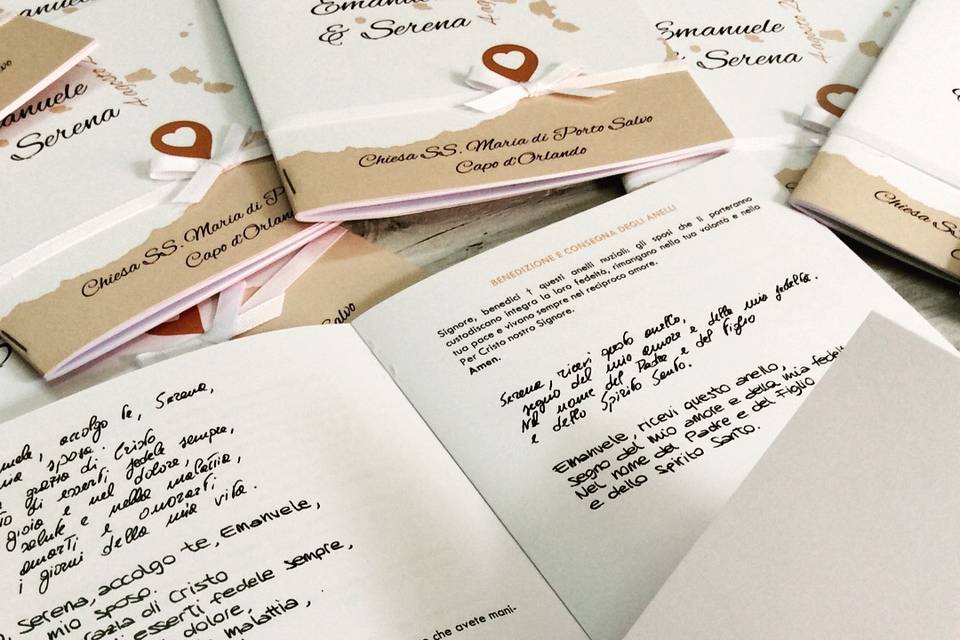 Emanuele
& Serena
Chiesa SS. Maria di Porto Salvo
Capo d'Orlando
Emanuele
& Serena
anuele
Serena
Chiesa SS. Maria di P
Capo d'Orlan
Salvo
Chiesa S
BENEDIZIONE E CONSEGNA DEGLI ANELLI
Signore, benedici † questi anelli nuziali: gli sposi che li porteranno
custodiscano integra la loro fedeltà, rimangano nella tua volontà e nella
tua pace e vivano sempre nel reciproco amore.
Per Cristo nostro Signore.
Amen.
Serena, ricevi questo anello,
segno del mio amore e della mia fedeltà.
Nel nome del Padre e del Figlio
e dello Spirito Santo.
Emanuele, ricevi questo anello,
segno del mio amore e della mia fedel
Nel nome del Padre e del Figlio
e dello Spirito Santo.
accolgo te, Serena,
sposa.
grazia di Cristo
di esserti fedele sempre,
gioia e nel dolore,
salute e nella malattia,
amarti e onorarti
i giorni della mia vita.
Serena, accolgo te, Emanuele,
mio sposo.
grazia di Cristo
esserti fedele sempre,
dolore,
malattia,
che avete mani-